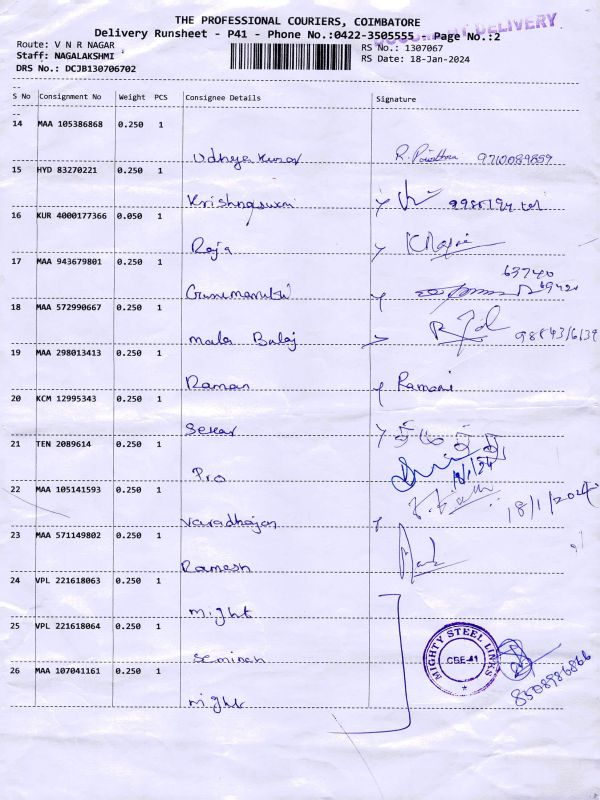 THE PROFESSIONAL COURIERS, COIMBATORE
Delivery Runsheet - P41 - Phone No.:0422-3505555 - Page No.:2
DELIVERY
Route: V N R NAGAR
RS No.: 1307067
Staff: NAGALAKSHMI
RS Date: 18-Jan-2024
DRS No.: DCJB130706702
S No Consignment No Weight PCS Consignee Details Signature
14 MAA 105386868 0.250 1
Udhya Kumar 9710089859
15 HYD 83270221 0.250 1
Krishnaswami
16 KUR 4000177366 0.050 1
Raja
17 MAA 943679801 0.250 1
63740
69420
18 MAA 572990667 0.250 1
Mala Balaj
19 MAA 298013413 0.250 1
Raman Ramani
20 KCM 12995343 0.250 1
Sekar
21 TEN 2089614 0.250 1
Pro
22 MAA 105141593 0.250 1
18/1/2024
Varadhajan
23 MAA 571149802 0.250 1
Ramesh
24 VPL 221618063 0.250 1
Might
25 VPL 221618064 0.250 1
MIGHTY STEEL LINKS
CBE-41
26 MAA 107041161 0.250 1
Might
8508986866